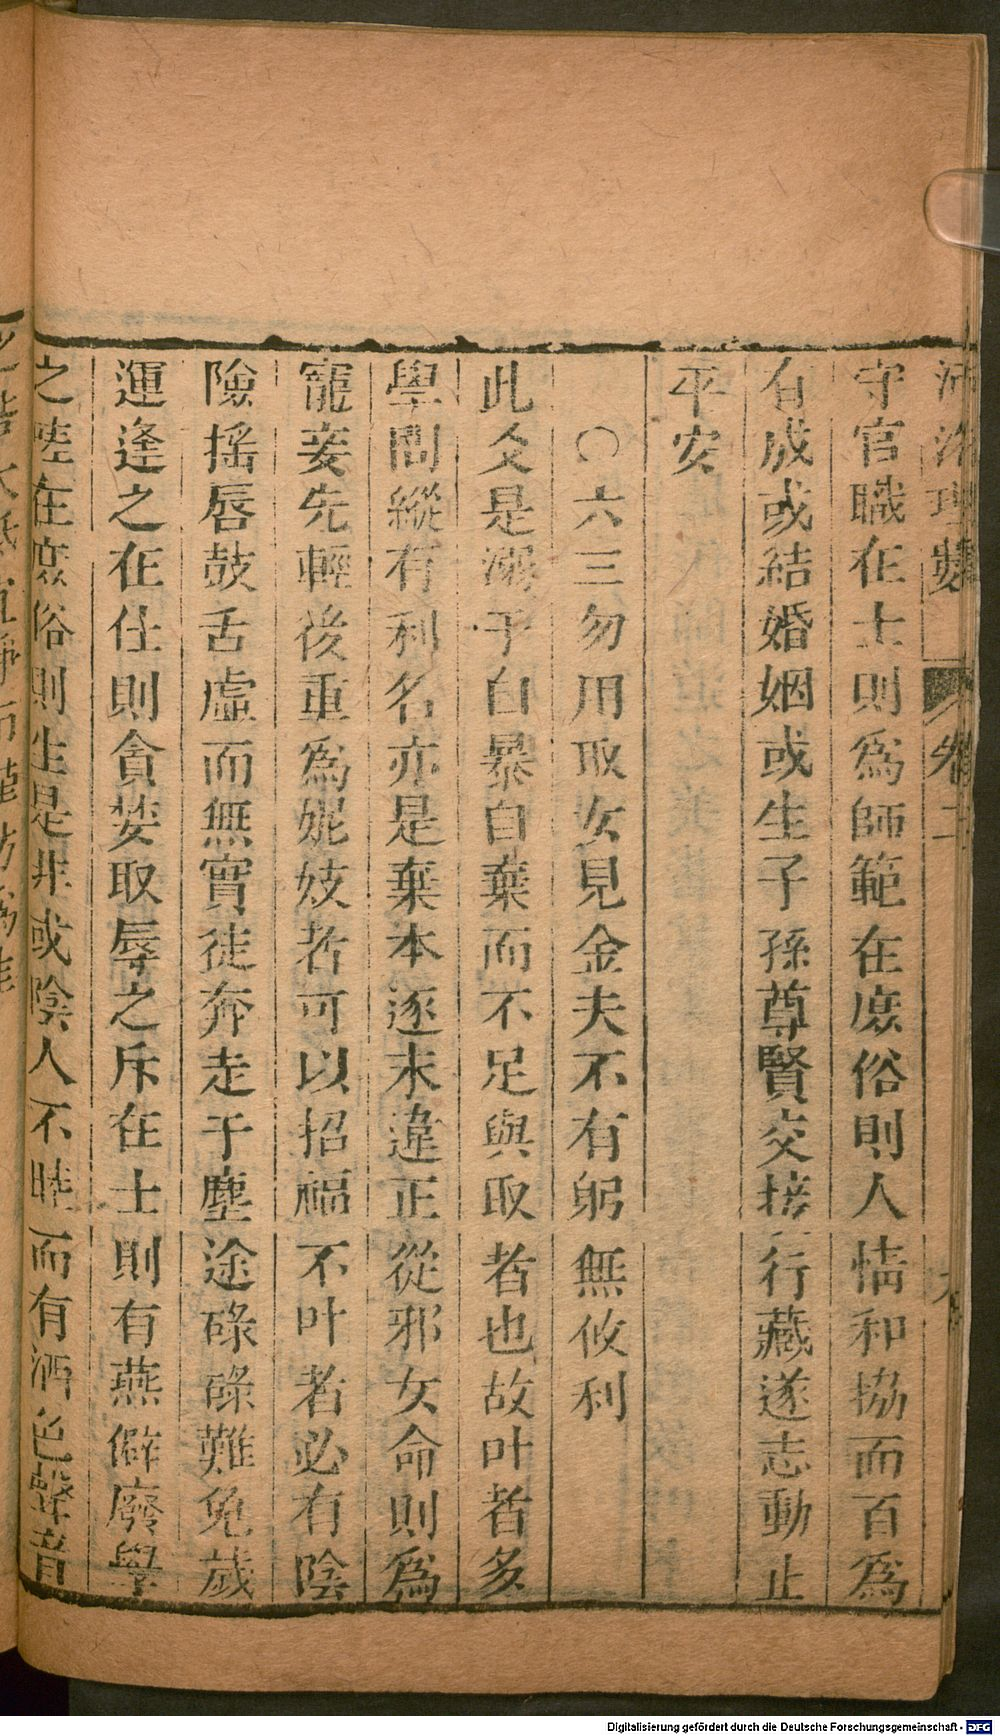 河洛理數 卷二
守官職在士則爲師範在庶俗則人情和協而百爲
有成或結婚姻或生子孫尊賢交接行藏遂志動止
平安
〇六三勿用取女見金夫不有躬無攸利
此爻是溺于自暴自棄而不足與取者也故叶者多
學問縱有利名亦是棄本逐末違正從邪女命則爲
寵妾先輕後重爲娓妓者可以招福不叶者必有陰
險揺唇鼓舌虛而無實徒奔走于塵途碌碌難免歲
運逢之在仕則貪婪取辱之斥在士則有燕僻廢學
之嗟在庶俗則生是非或陰人不睦而有酒色聲音
Digitalisierung gefördert durch die Deutsche Forschungsgemeinschaft - DFG